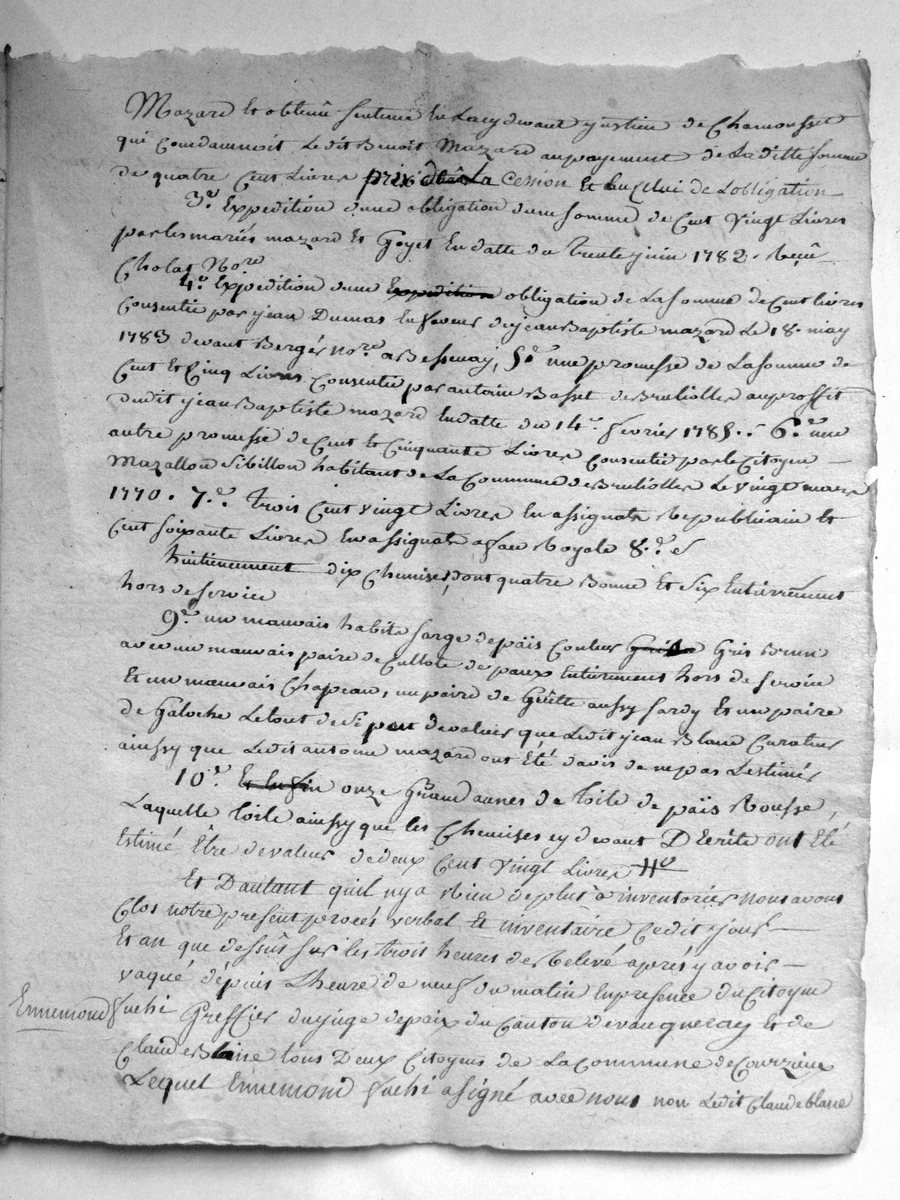 Mazard et obtenu sentence en la cy devant justice de Chamousset
qui Condamnoit Ledit Benoit Mazard aupayement de Laditte somme
de quatre Cent Livres La Cession Et de L'obligation
3.º Expedition dune obligation dune somme de Cent Vingt Livres
par les mariés mazard Et Goyet En datte du trente juin 1782. Reçû
Cholat No.re
4.º Expedition dune Expedition obligation de La somme de Cent livres
Consentie par jean Dumas En faveur de jean Baptiste mazard Le 18. may
1783 devant Bergér no.re a Bessenay, 5.º une promesse de La somme de
Cent Et Cinq Livres Consentie par antoine Basset de Brullioller auproffit
dudit jean Baptiste mazard En datte du 14.e fevrier 1785. 6.º une
autre promesse de Cent Et Cinquante Livres Consentie par le Citoyen
Mazallon Sibillon habitant de La Commune de Brullioller Le vingt mars
1770. 7.º trois Cent vingt Livres En assignats Republicain Et
Cent soixante Livres En assignats a face Royale 8.º
huitiencement dix Chemises, dont quatre Bonne Et six Entièrrement
hors de service
9.º un mauvais habite sarge depaïs Couleur Gris Brun
avec un mauvais paire de Cullote de peaux Entierement hors de service
Et un mauvais Chapeau, un paire de Guêtte aussy sardy Et un paire
de Galoche Le tout de Si peut de valeur que Ledit jean Blanc Curateur
ainssy que Ledit antoine mazard ont Été davis de ne pas L'estimér
10.º Et Enfin onze Grand aunes de toile de païs Rousse,
Laquelle toile ainssy que les Chemises cy devant D'Ecrite ont Eté
Estimé Être de valeur de deux Cent Vingt Livres
Et Dautant quil ny a Rien de plus a inventorier nous avons
Clos notre present procés verbal Et inventaire Cedit jour
Et an que dessûs sur les trois heures de Relevé aprés y avoir
vaqué dépuis L'heure de neuf du matin En presence du Citoyen
Ennemond fuchi Greffier du juge de paix du Canton de vaugneray Et de
Claude Blanc tous Deux Citoyens de La Commune de Courzieux
Lequel Ennemond fuchi a signé avec nous non Ledit Claude blanc